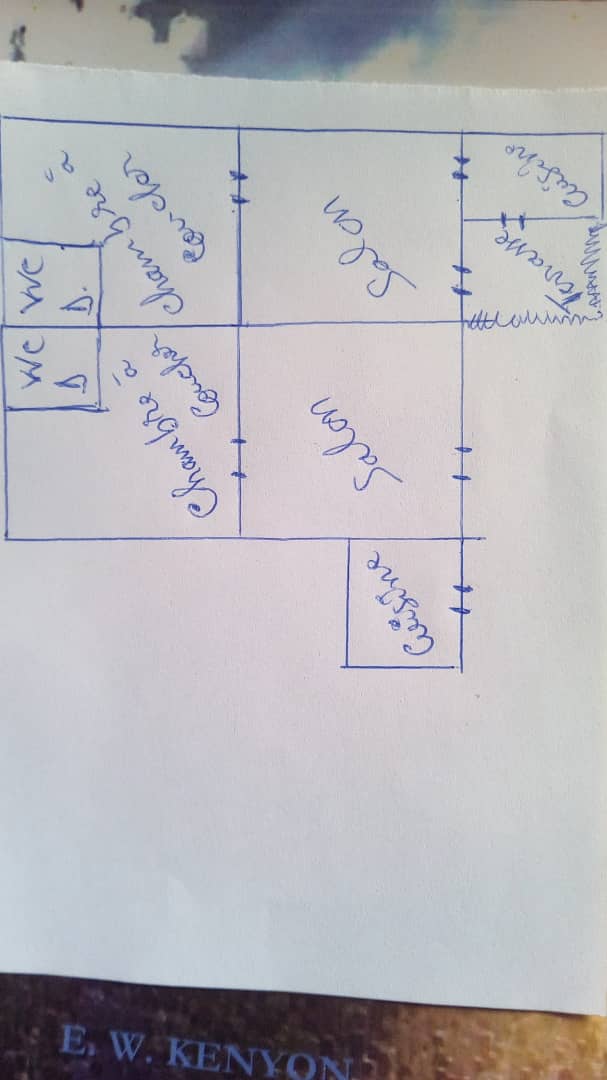 Cuisine
Terrasse
Salon
Chambre à
coucher
WC
D.
WC
D
Chambre à
Coucher
Salon
Cuisine
E. W. KENYON